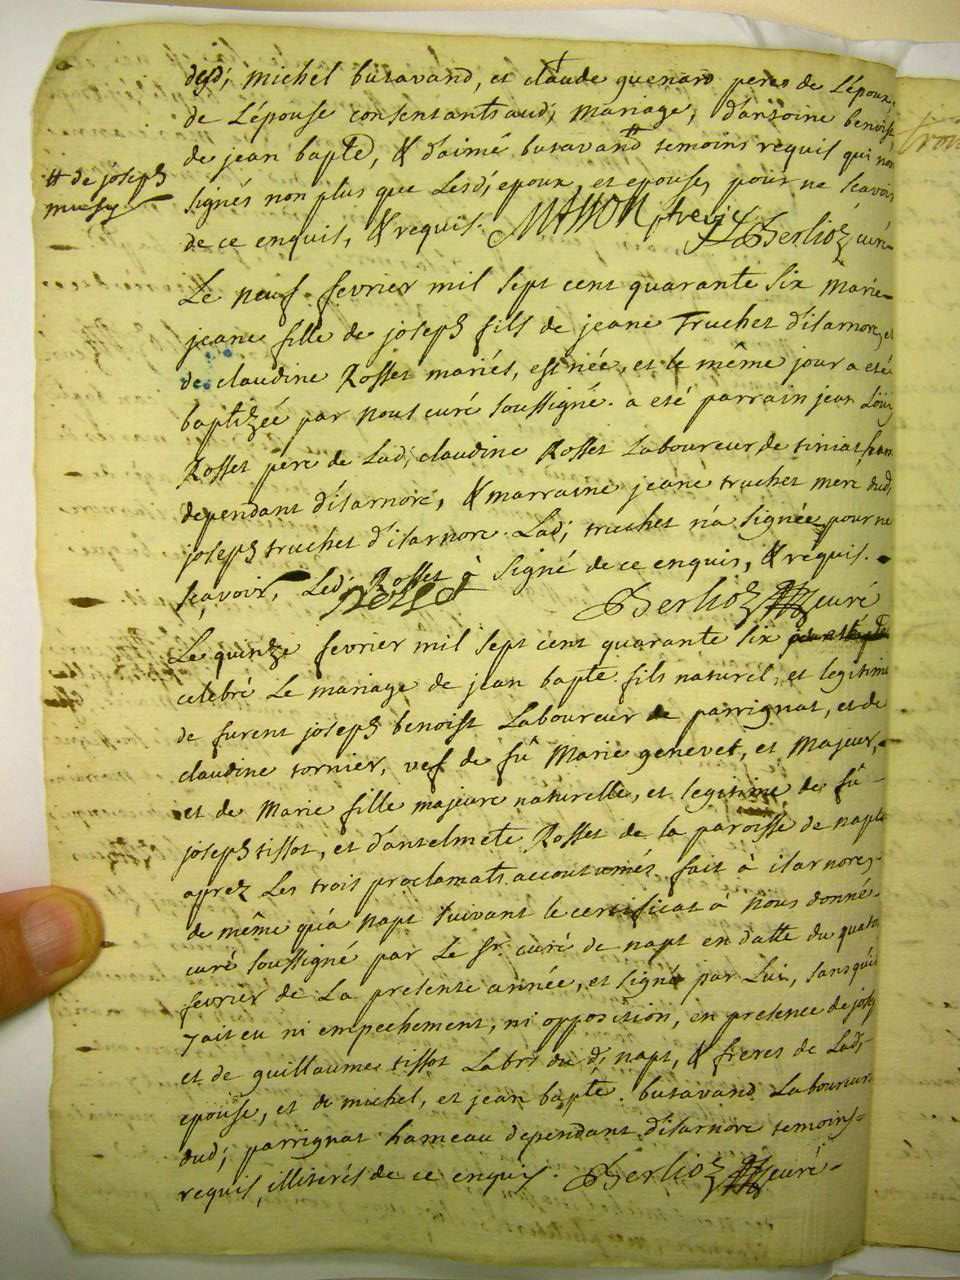 desd; michel butavand, et claude guenard peres de L'époux,
de L'épouse consentants aud; mariage, d'antoine benoist
de jean bapte, & d'aimé butavand tt temoins requis qui non
tt de joseph
signés non plus que Lesd; epoux, et epouse, pour ne scavoir
de ce enquis, & requis. ptre Berlioz curé
Le neuf fevrier mil sept cent quarante six marie
jeane fille de joseph fils de jeane Truchet d'isarnore, et
de claudine Rosset mariés, est née, et le même jour a eté
baptizée par nous curé soussigné. a eté parrain jean Louis
Rosset pere de Lad; claudine Rosset Laboureur de
dependant d'isarnore, & marraine jeane truchet mere dud;
joseph truchet d'isarnore. Lad; truchet n'a signée pour ne
scavoir, Led; Rosset à signé de ce enquis, & requis.
Rosset Berlioz curé
Le quinze fevrier mil sept cent quarante six
celebré Le mariage de jean bapte. fils naturel, et legitime
de furent joseph benoist Laboureur de parrignat, et de
claudine tornier, vef de fû Marie genevet, et Majeur,
et de Marie fille majeure naturelle, et legitime de fû
joseph tissot, et d'antelmete Rosset de la paroisse de napt
aprez Les trois proclamats accoutumés fait à isarnore,
de même qu'à napt suivant le certificat à nous donné
curé soussigné par Le Sr. curé de napt en datte du quatre
fevrier de La presente année, et signé par Lui, sans qu'il
y ait eu ni empechement, ni opposition, en presence de joseph
et de guillaume tissot Labrs du d; napt, & freres de Lad;
epouse, et de michel, et jean bapte. butavand Laboureurs
dud; parrignat hameau dependant d'isarnore temoins
requis, illiterés de ce enquis. Berlioz curé